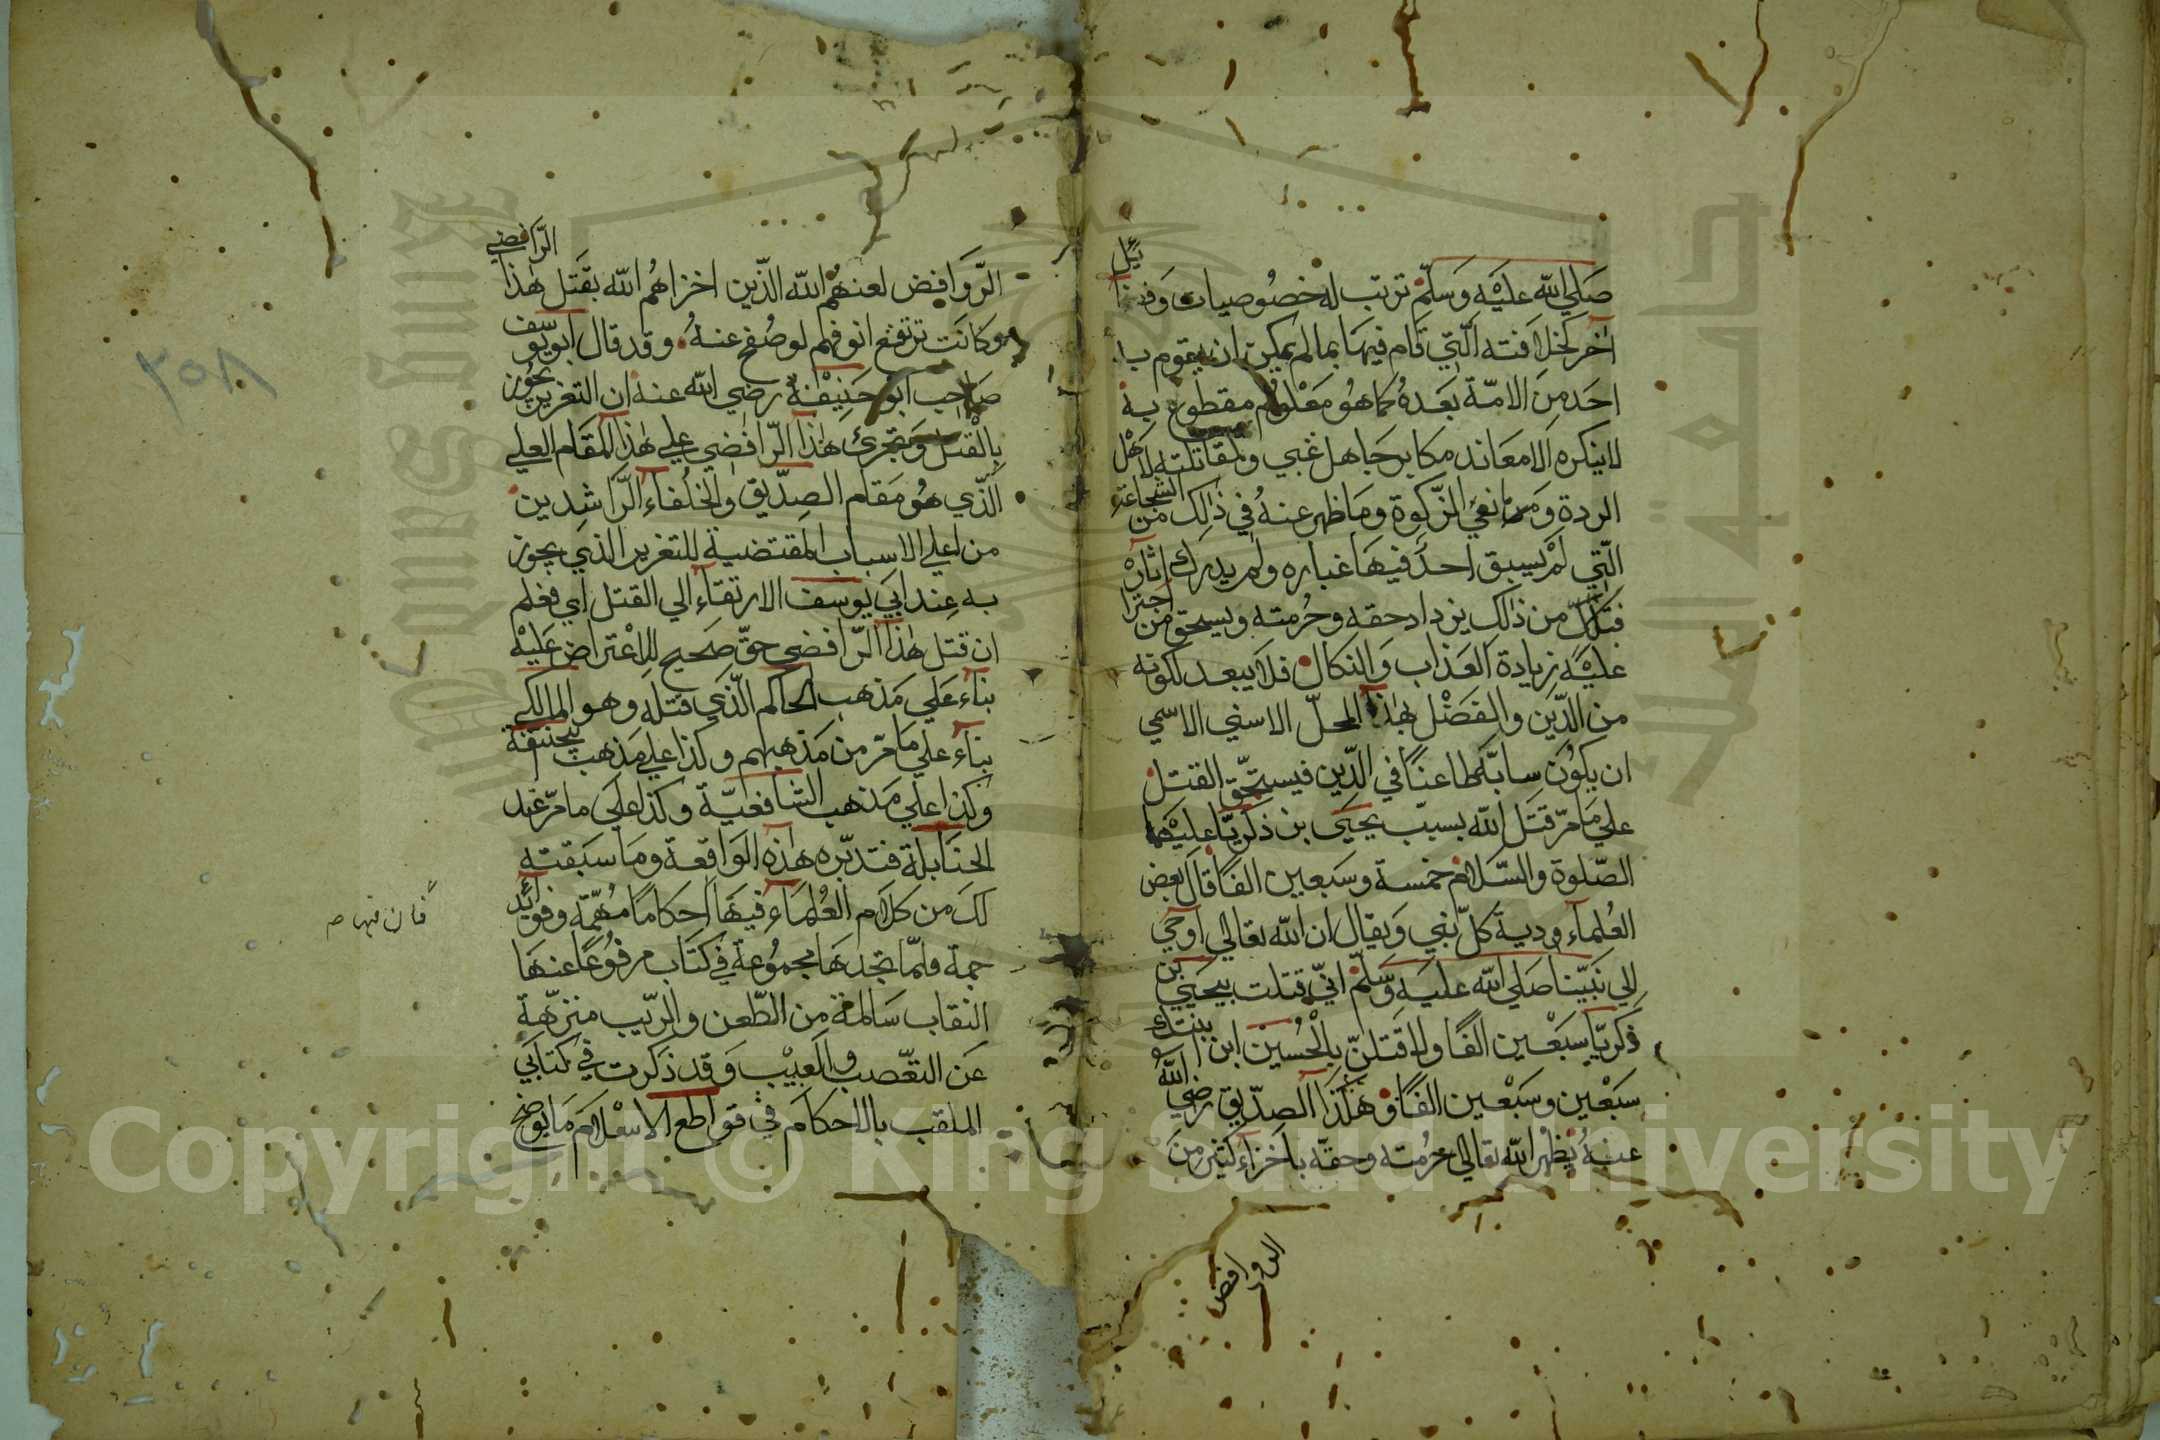 صَلي الله عليْه وَسَلّم ترتب له خصُوصيات وَفضَائل
اٰخر لخلافته الّتي قام فيهَا بما لم يمكن ان يقوم به
احَد مِن الامّة بعَدهُ كما هُو مَعْلوُم مقطوع به
لا ينكره الا معَاند مكابر جَاهل غبي ولمقاتلته لاَهْل
الردة وَمَانعي الزّكوة ومَا ظهر عنهُ في ذٰلك من الشجاعَة
الّتي لمْ يسبق احدٌ فيهَا غباره ولم يدرك اٰثارهْ
فتلك من ذٰلك يزداد حقه وحُرمته ويسحق من اجترا
عليْه زيادة العَذاب وَالنكال فلاَ يبعد لكونه
من الدّين والفضْل بهٰذا المحلّ الاسني الاسمي
ان يكوُن سابّه طاعنًا في الدّين فيستحّق القتل
علي مَا مرّ قتَل الله بسبب يحيَى بن ذكريّا عليْهما
الصّلوة والسّلام خمسة وسَبعين الفًا قال بَعض
العُلماء ودية كلّ نبي وَيقال ان الله تعالي اوحي
الي نَبيّنا صَلي الله عليه وَسَلّم انّي قتلت بيحيَي بن
ذكريّا سَبْعين الفًا ولاقتلنّ بالْحُسيْن ابن بنتك
سَبْعين وسَبْعين الفًا وهٰذَا الصدّيق رضي اللهُ
عنهُ يُظهر الله تعالي حرُمته وحقّه باخزاء كثير من
الروافض
الرّوَافِض لعنهُم الله الّذين اخزاهُم الله بقتل هٰذا الرّافضي
وكانت ترتفع انوفهم لو صُفح عنهُ وقد قال ابو يوسف
صاحب ابو حَنِيْفة رضي الله عنهُ ان التعزير يجوُز
بالقتل وتجرئ هٰذا الرّافضي علي هٰذا المقام العلي
الّذي هُو مَقام الصدّيق والخلفاء الرّاشدين
من اعلي الاسباب المقتضية للتعزير الذي يجوز
به عند ابي يوُسف الارتقاء الي القتل اي فعلم
ان قتل هٰذا الرّافضي حقّ صَحيح لا اعْتراض عَليْه
بناء علي مَذهب الحاكم الّذي قتله وهو المالكي
بناء علي مَا مرّ من مَذهبهم وكذا علي مَذهب ابي حنيفة
وكذا علي مَذهب الشافعيّة وكذا علَى ما مرّ عند
الحنَابلة فتدبّره هٰذه الوَاقعة ومَا سَبقته
لكَ من كلاَم العُلمَاء فيهَا احكامًا مُهمّة وفوائد
جمة قلمّا تجدهَا مجموُعة في كتَاب مرفوُعًا عنهَا
النقاب سَالمة مِن الطّعن والرّيب منزهّة
عَن التعّصب والعيْب وَقد ذكرت في كتابي
الملقب بالاحكام في قواطع الاسْلاَم مَا يوضح
فان فيها صح
٣٥٨
Copyright © King Saud University